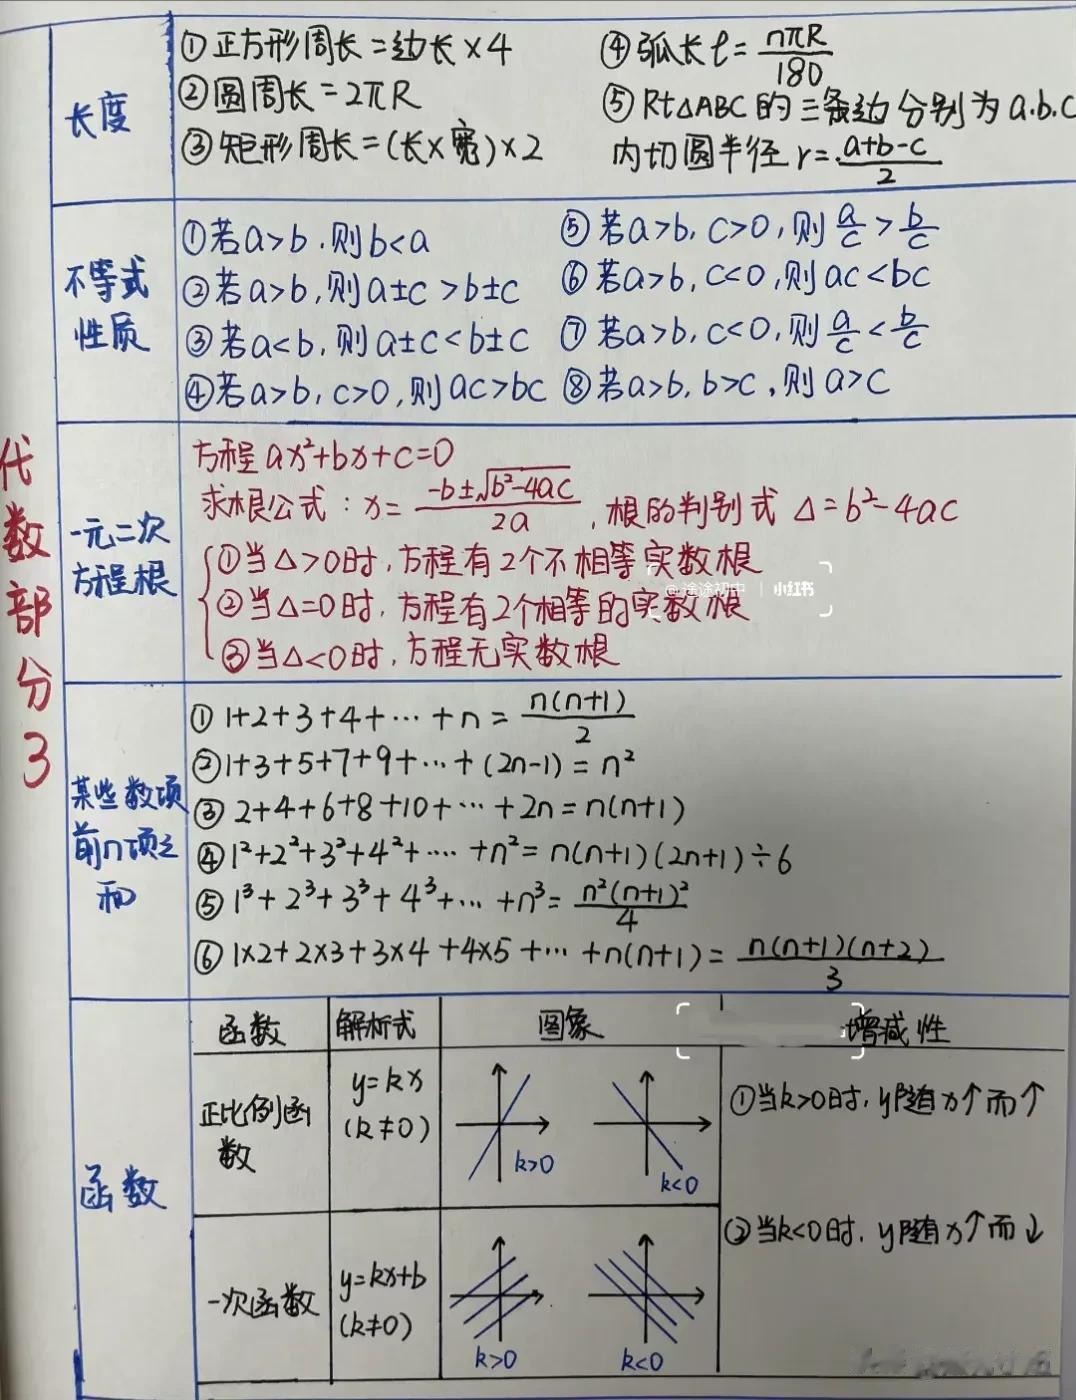 代数部分3
长度
①正方形周长=边长×4
②圆周长=2πR
③矩形周长=(长×宽)×2
④弧长ℓ=nπR/180
⑤Rt△ABC的三条边分别为a.b.c
内切圆半径r=a+b-c/2
不等式
性质
①若a>b,则b<a
②若a>b,则a±c>b±c
③若a<b,则a±c<b±c
④若a>b,c>0,则ac>bc
⑤若a>b,c>0,则a/c>b/c
⑥若a>b,c<0,则ac<bc
⑦若a>b,c<0,则a/c<b/c
⑧若a>b,b>c,则a>c
一元二次
方程根
方程ax²+bx+c=0
求根公式:x=-b±√b²-4ac/2a,根的判别式△=b²-4ac
①当△>0时,方程有2个不相等实数根
②当△=0时,方程有2个相等的实数根
③当△<0时,方程无实数根
@途途初中 | 小红书
某些数项
前n项之
和
①1+2+3+4+…+n=n(n+1)/2
②1+3+5+7+9+…+(2n-1)=n²
③2+4+6+8+10+…+2n=n(n+1)
④1²+2²+3²+4²+…+n²=n(n+1)(2n+1)÷6
⑤1³+2³+3³+4³+…+n³=n²(n+1)²/4
⑥1×2+2×3+3×4+4×5+…+n(n+1)=n(n+1)(n+2)/3
函数
函数 解析式 图象 增减性
正比例函
数
y=kx
(k≠0)
k>0
k<0
①当k>0时,y随x↑而↑
②当k<0时,y随x↑而↓
一次函数
y=kx+b
(k≠0)
k>0
k<0